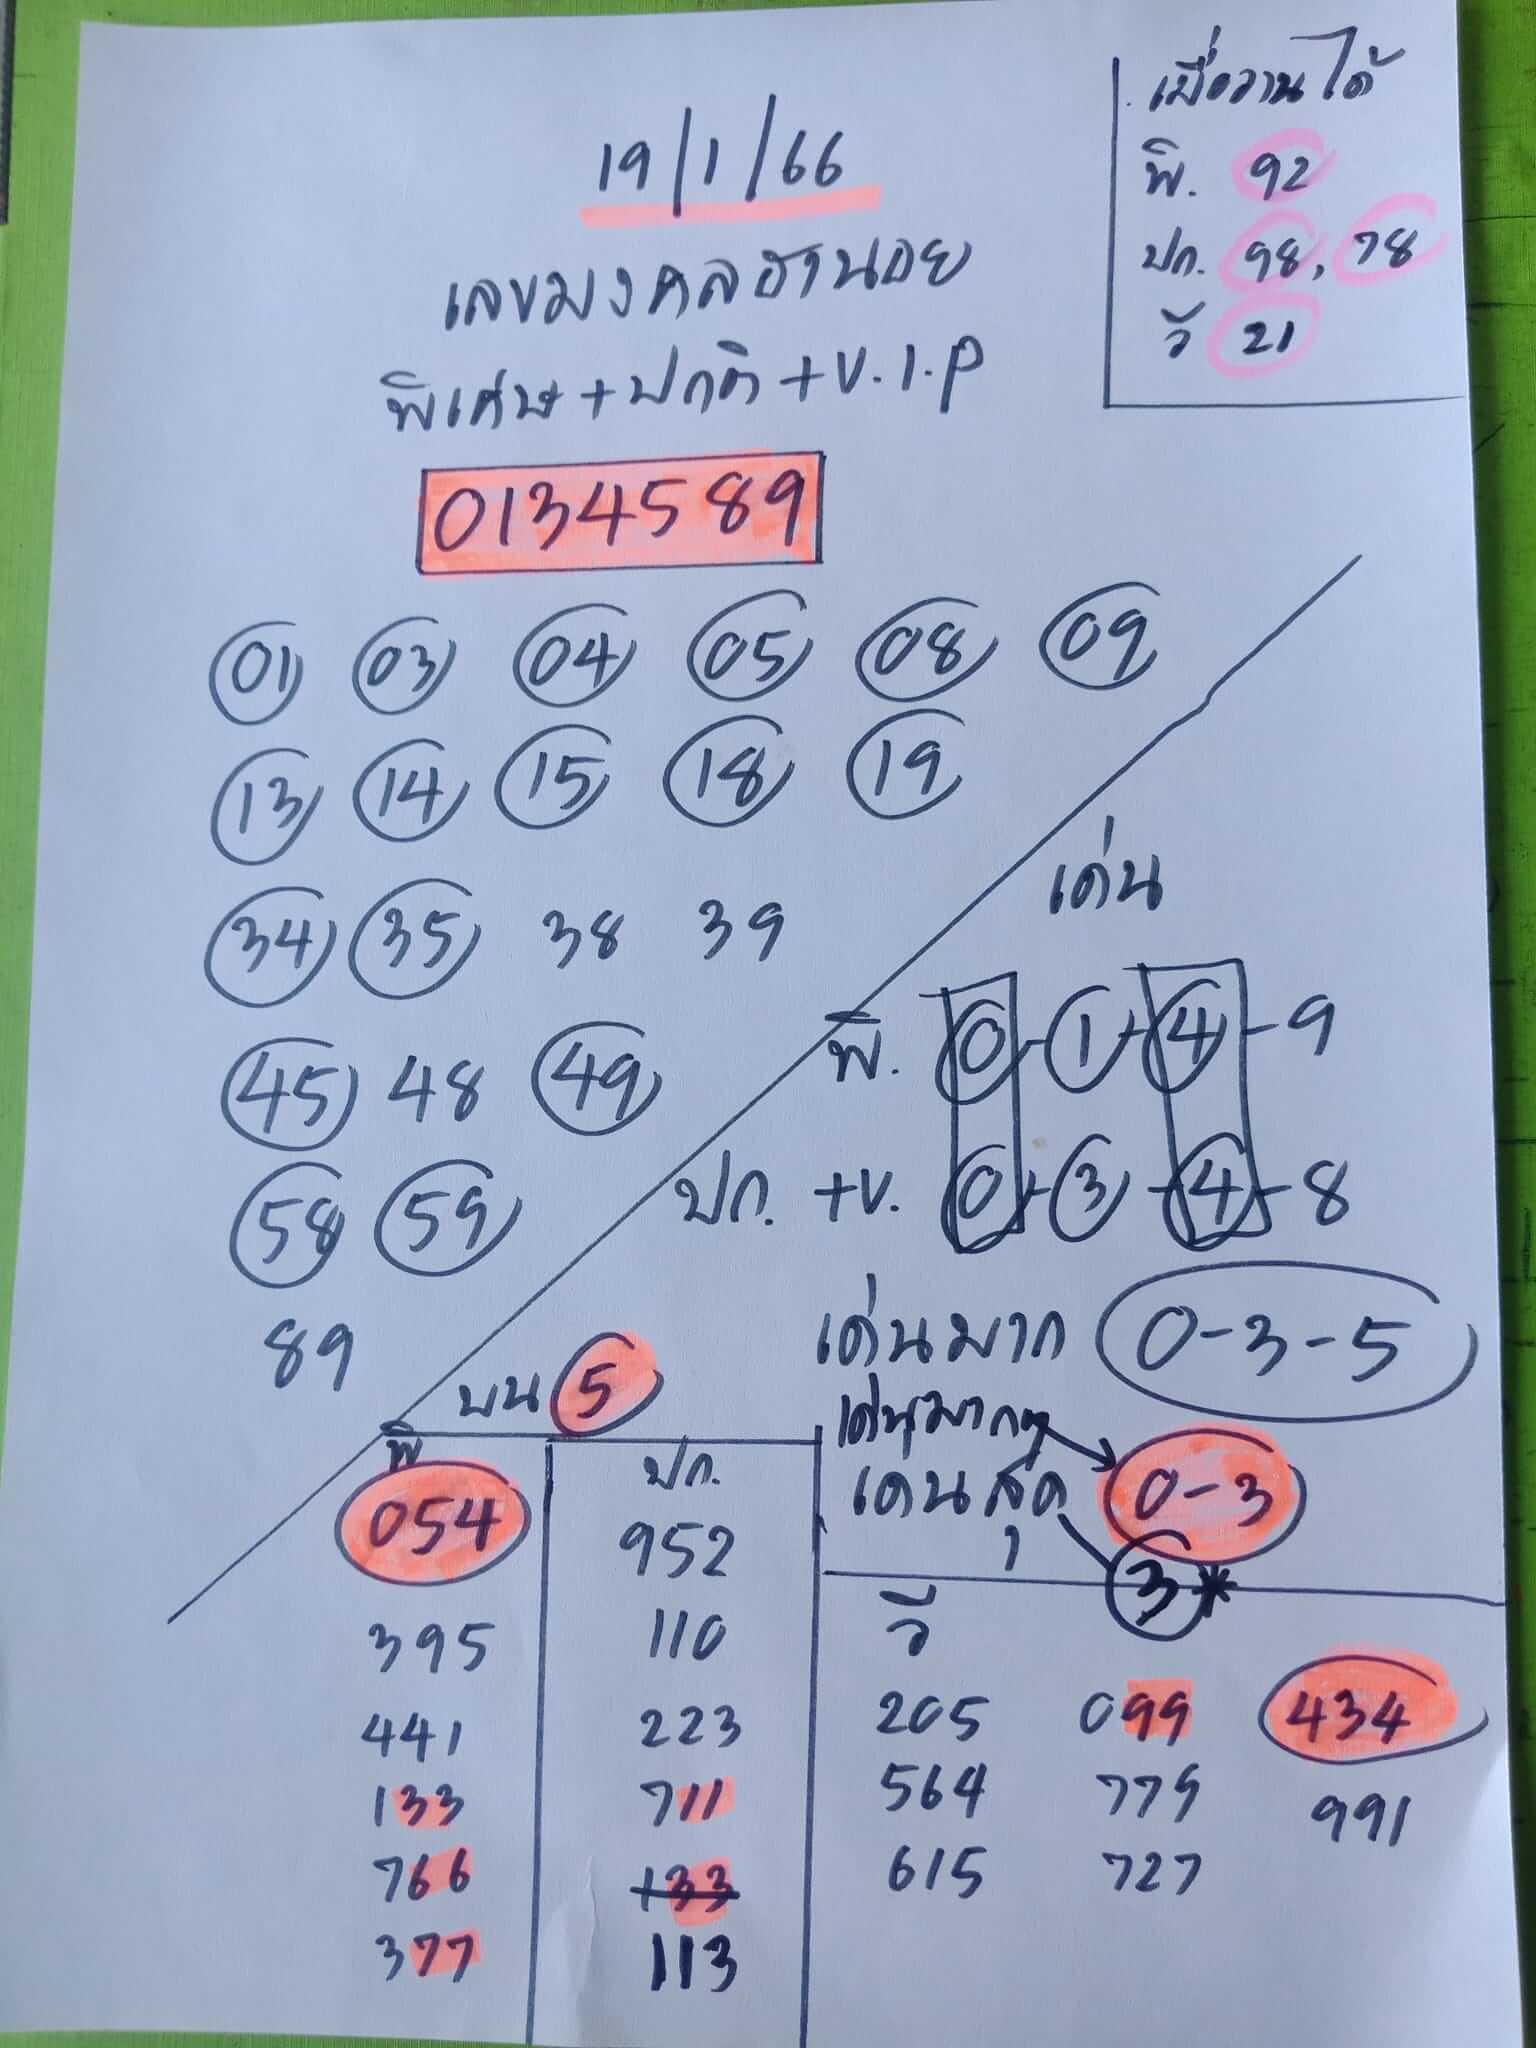 เมื่อวานได้
พิ. 92
ปก. 98, 78
วี 21
19/1/66
เลขมงคลฮานอย
พิเศษ+ปกติ+V.I.P
0134589
01 03 04 05 08 09
13 14 15 18 19
34 35 38 39
45 48 49
58 59
89
เด่น
พิ. 0-1-4-9
ปก. +V. 0-3-4-8
เด่นมาก 0-3-5
เด่นมากๆ 0-3
เด่นสุด 3*
บน 5
พิ
054
395
441
133
766
377
ปก.
952
110
223
711
133
113
วี
205 099 434
564 779 991
615 727